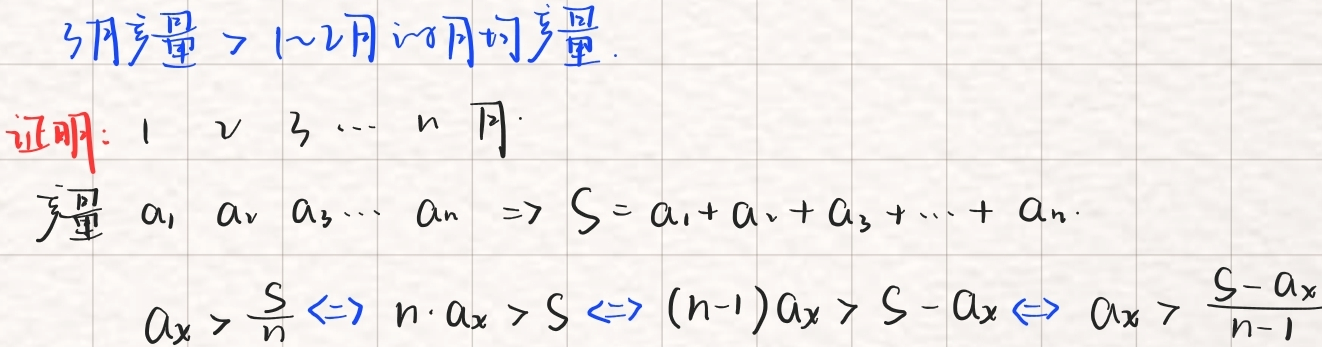 3月产量 > 1~2月的月均产量.
证明: 1 2 3 … n 月.
产量 a₁ a₂ a₃ … aₙ => S = a₁ + a₂ + a₃ + … + aₙ.
aₓ > S/n <=> n·aₓ > S <=> (n-1)aₓ > S - aₓ <=> aₓ > (S - aₓ)/(n-1)